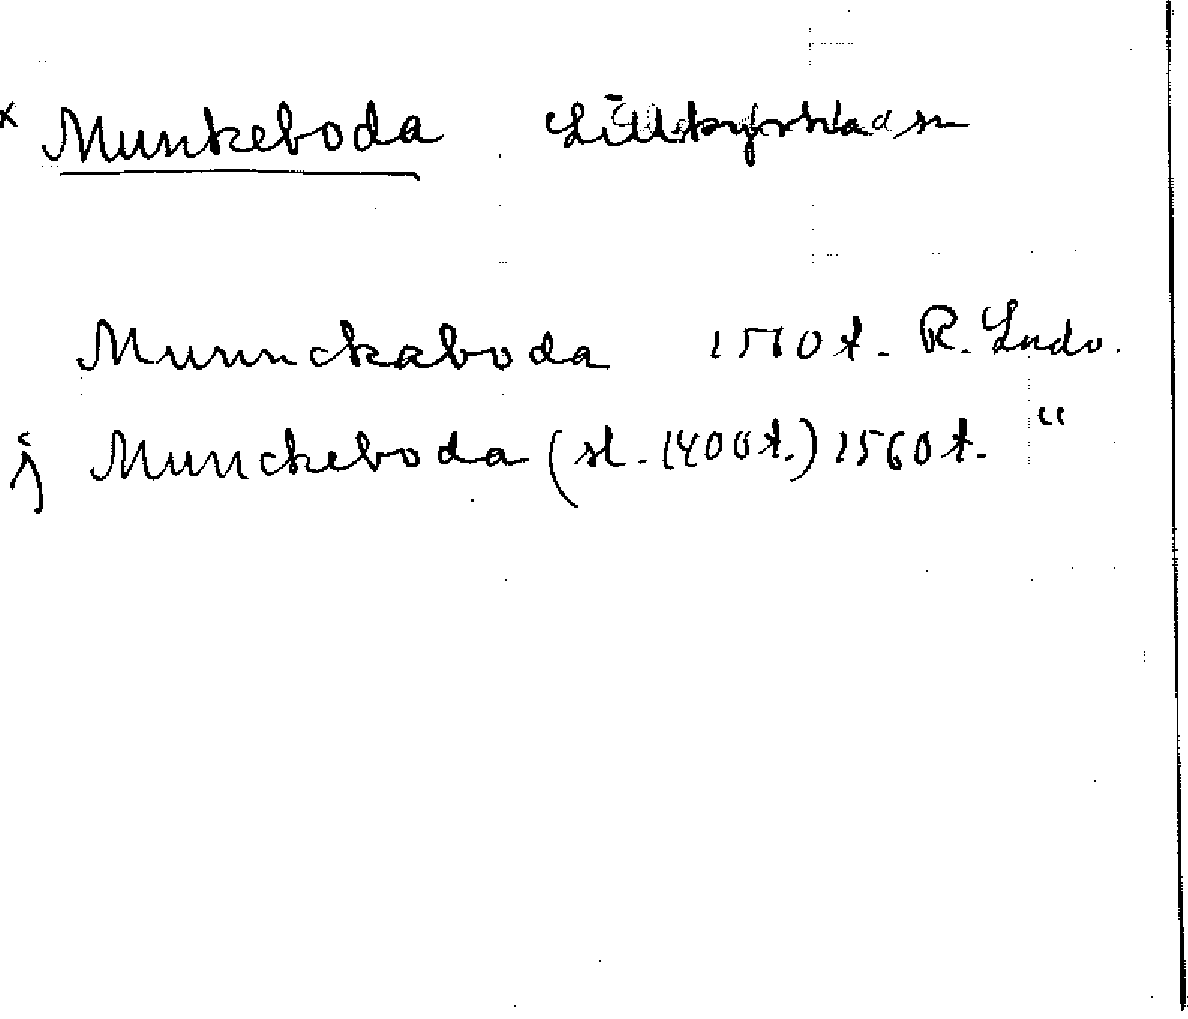 x Munkeboda Lillkyrka sn
Munnckaboda 1560 t. R. Ludv.
j Munckeboda (sl. 1400 t.) 1560 t. "